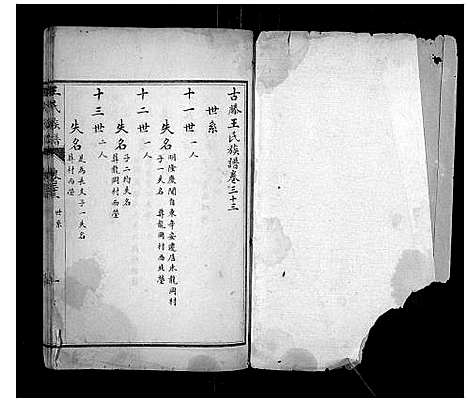 古滕王氏族譜卷三十三
世系
十一世一人
失名
明隆慶間自東平安遷居朱龍岡村
子一失名 葬龍岡村西北塋
十二世一人
失名
子二均失名
葬龍岡村西塋
十三世二人
失名
是為長支子一失名
葬村西塋
王氏族譜
世系
一